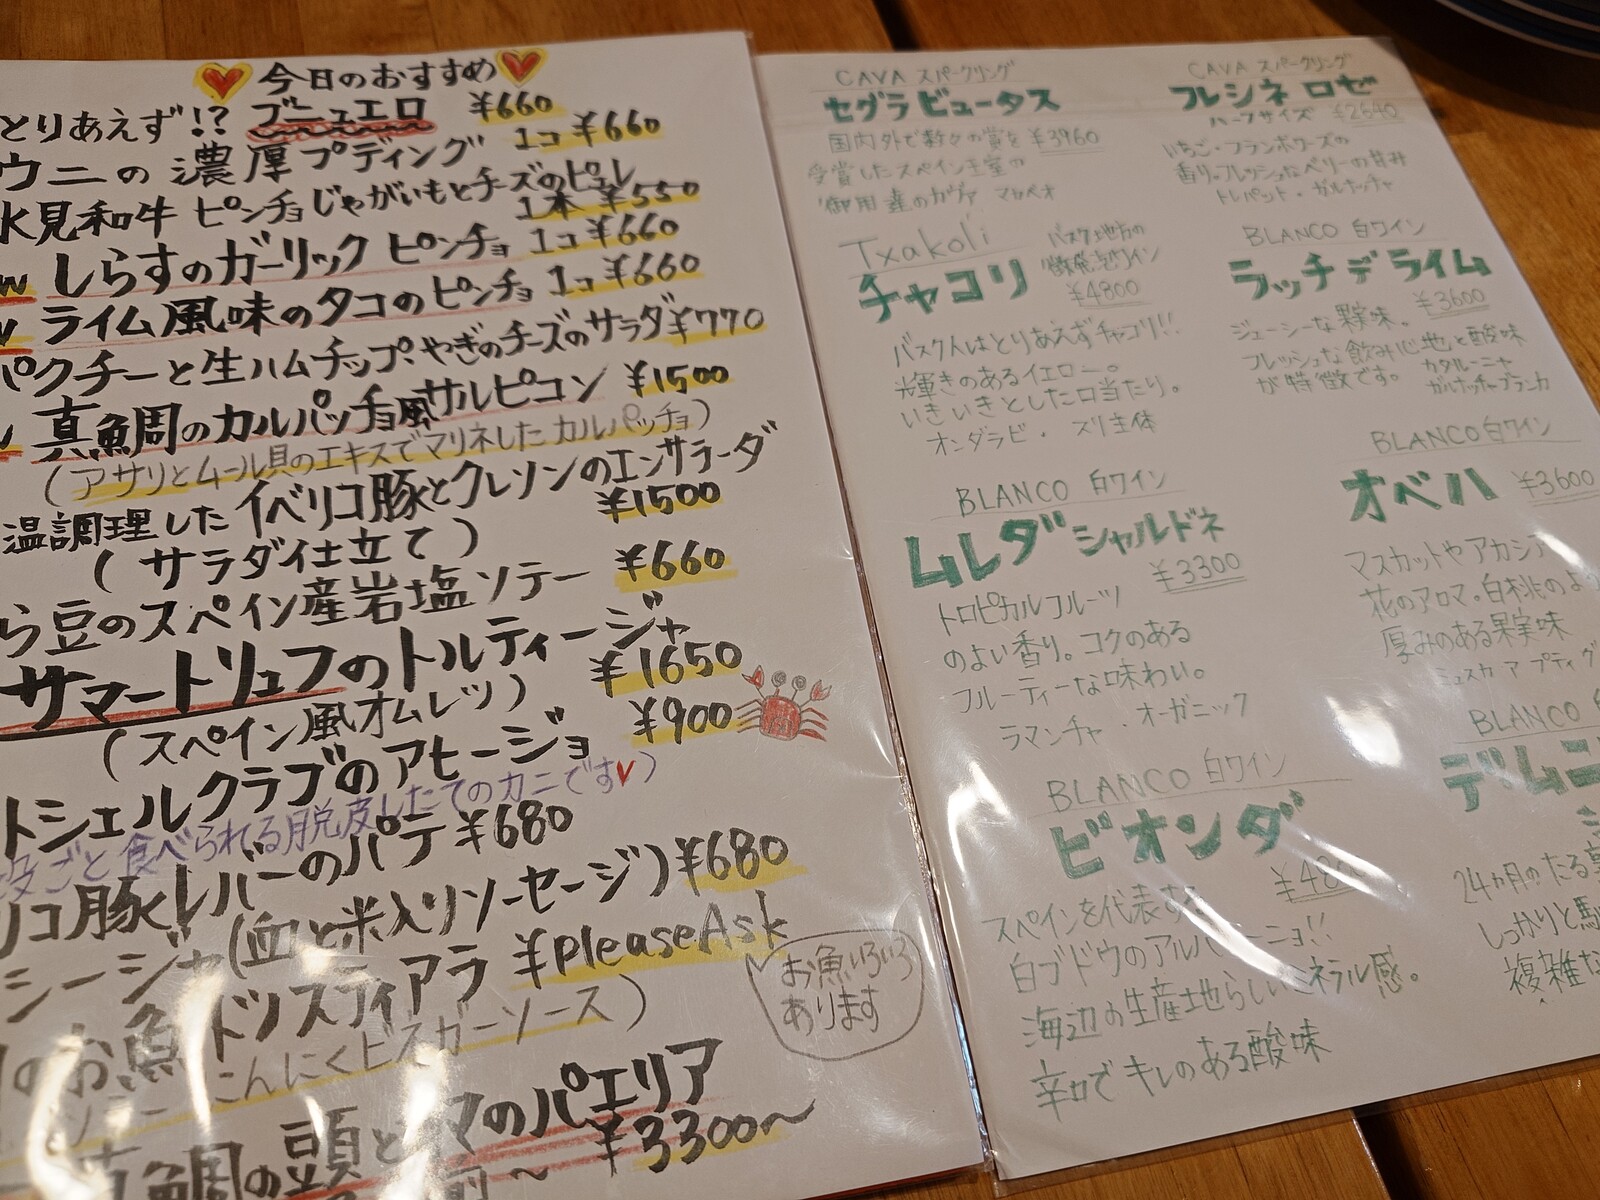 今日のおすすめ
とりあえず!? ブニュエロ ¥660
ウニの濃厚プディング 1コ ¥660
氷見和牛 ピンチョ じゃがいもとチーズのピュレ
1本 ¥550
しらすのガーリック ピンチョ 1コ ¥660
ライム風味のタコのピンチョ 1コ ¥660
パクチーと生ハムチップ、やぎのチーズのサラダ ¥770
真鯛のカルパッチョ風サルピコン ¥1500
(アサリとムール貝のエキスでマリネしたカルパッチョ)
温調理したイベリコ豚とクレソンのエンサラーダ
(サラダ仕立て) ¥1500
ら豆のスペイン産岩塩ソテー ¥660
サマートリュフのトルティージャ
(スペイン風オムレツ) ¥1650
トシェルクラブのアヒージョ ¥900
皮ごと食べられる脱皮したてのカニです)
リコ豚レバーのパテ ¥680
シージャ(血と米入りソーセージ) ¥680
のお魚 ドノスティアラ ¥PleaseAsk
んにくビネガーソース)
お魚いろいろ
あります
真鯛の頭と マのパエリア
¥3300〜
CAVA スパークリング
セグラビュータス
国内外で数々の賞を ¥3960
受賞したスペイン王室の
御用達のカヴァ マカベオ
Txakoli
チャコリ
バスク地方の
微発泡ワイン
¥4800
バスク人はとりあえずチャコリ!!
輝きのあるイエロー。
いきいきとした口当たり。
オンダラビ・スリ主体
BLANCO 白ワイン
ムレダ シャルドネ
¥3300
トロピカルフルーツ
のよい香り。コクのある
フルーティーな味わい。
ラマンチャ・オーガニック
BLANCO 白ワイン
ビオンダ
スペインを代表する
白ブドウのアルバリーニョ!!
海辺の生産地らしいミネラル感。
辛口でキレのある酸味
CAVA スパークリング
フレシネ ロゼ
ハーフサイズ ¥2640
いちご・フランボワーズの
香り。フレッシュなベリーの甘み
トレパット・ガルナッチャ
BLANCO 白ワイン
ラッチ デ ライム
¥3600
ジューシーな果味。
フレッシュな飲み心地と酸味
が特徴です。
カタルーニャ
ガルナッチャブランカ
BLANCO 白ワイン
オベハ ¥3600
マスカットやアカシア
花のアロマ。白桃のよ
厚みのある果実味
BLANCO
24ヵ月のたる
しっかりと
複雑な